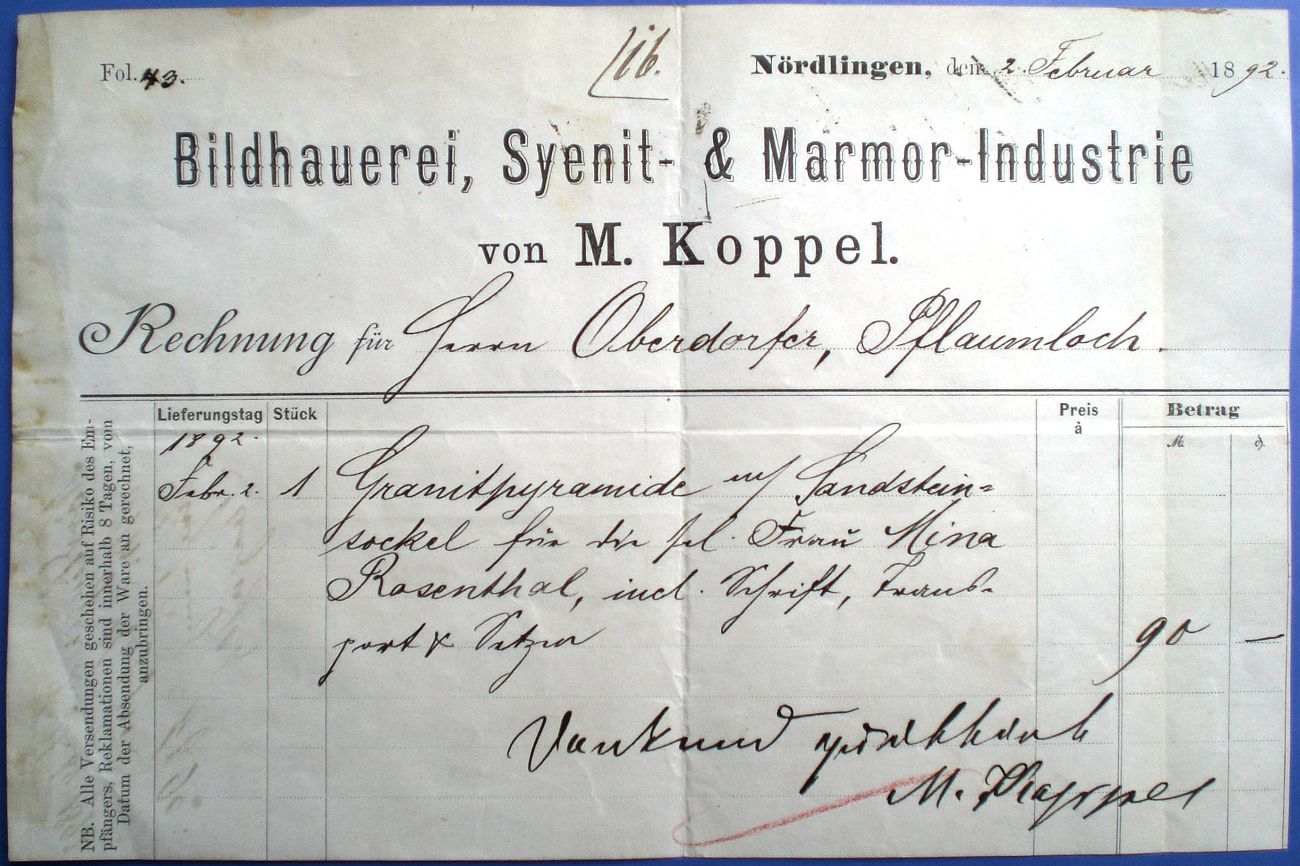 Fol. 43.
Nördlingen, den 2 Februar 1892.
Bildhauerei, Syenit- & Marmor-Industrie
von M. Koppel.
Rechnung für Herrn Oberdorfer, Pflaumloch.
Lieferungstag Stück Preis à Betrag
M. ₰
1892.
Febr. 2. 1 Granitpyramide m/ Sandstein=
sockel für die sel. Frau Mina
Rosenthal, incl. Schrift, Trans-
port & Setzen 90 —
Dankend
M. Koppel
NB. Alle Versendungen geschehen auf Risiko des Em-
pfängers, Reklamationen sind innerhalb 8 Tagen, vom
Datum der Absendung der Ware an gerechnet,
anzubringen.